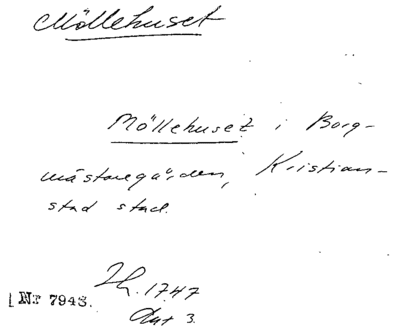 Möllehuset
Möllehuset i Borg-
mästaregården, Kristian-
stad stad.
Lh. 1747
Akt 3.
Nr 7943.